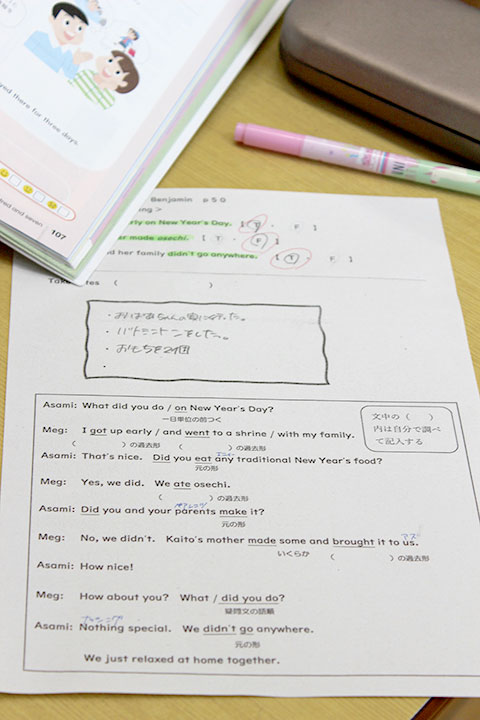 yed there for three days.
107
Benjamin p 5 0
rly on New Year's Day. [ T ・ F ]
er made osechi. [ T ・ F ]
d her family didn't go anywhere. [ T ・ F ]
tes ( )
・おばあちゃんの家に行った。
・バトミントンをした。
・おもちを
・
Asami: What did you do / on New Year's Day?
一日単位の前つく
文中の( )
内は自分で調べ
て記入する
Meg: I got up early / and went to a shrine / with my family.
( )の過去形 ( )の過去形
Asami: That's nice. Did you eat any traditional New Year's food?
元の形
Meg: Yes, we did. We ate osechi.
( )の過去形
Asami: Did you and your parents make it?
元の形
Meg: No, we didn't. Kaito's mother made some and brought it to us.
いくらか ( )の過去形
Asami: How nice!
Meg: How about you? What / did you do?
疑問文の語順
ナッシング
Asami: Nothing special. We didn't go anywhere.
元の形
We just relaxed at home together.